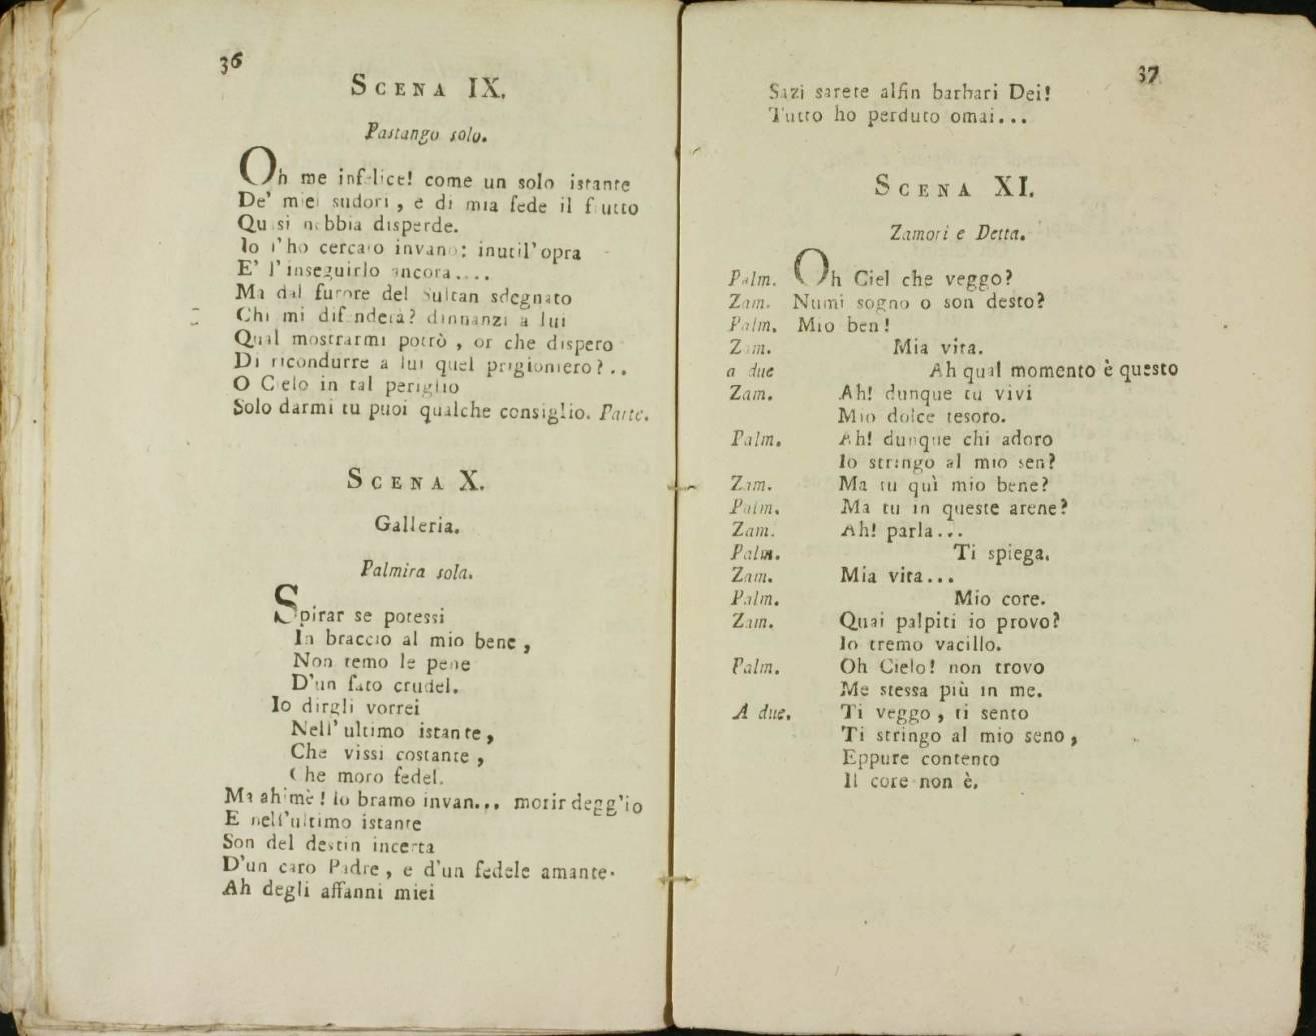 36
SCENA IX.
Pastango solo.
Oh me infelice! come un solo istante
De' miei sudori, e di mia fede il frutto
Quasi nebbia disperde.
Io l'ho cercato invano: inutil'opra
E' l'inseguirlo ancora....
Ma dal furore del Sultan sdegnato
Chi mi difenderà? dinnanzi a lui
Qual mostrarmi potrò, or che dispero
Di ricondurre a lui quel prigioniero?..
O Cielo in tal periglio
Solo darmi tu puoi qualche consiglio. Parte.
SCENA X.
Galleria.
Palmira sola.
Spirar se potessi
In braccio al mio bene,
Non temo le pene
D'un fato crudel.
Io dirgli vorrei
Nell'ultimo istante,
Che vissi costante,
Che moro fedel.
Ma ahimè! Io bramo invan... morir degg'io
E nell'ultimo istante
Son del destin incerta
D'un caro Padre, e d'un fedele amante.
Ah degli affanni miei
37
Sazi sarete alfin barbari Dei!
Tutto ho perduto omai...
SCENA XI.
Zamori e Detta.
Palm. Oh Ciel che veggo?
Zam. Numi sogno o son desto?
Palm. Mio ben!
Zam. Mia vita.
a due Ah qual momento è questo
Zam. Ah! dunque tu vivi
Mio dolce tesoro.
Palm. Ah! dunque chi adoro
Io stringo al mio sen?
Zam. Ma tu quì mio bene?
Palm. Ma tu in queste arene?
Zam. Ah! parla...
Palm. Ti spiega.
Zam. Mia vita...
Palm. Mio core.
Zam. Quai palpiti io provo?
Io tremo vacillo.
Palm. Oh Cielo! non trovo
Me stessa più in me.
A due. Ti veggo, ti sento
Ti stringo al mio seno,
Eppure contento
Il core non è.